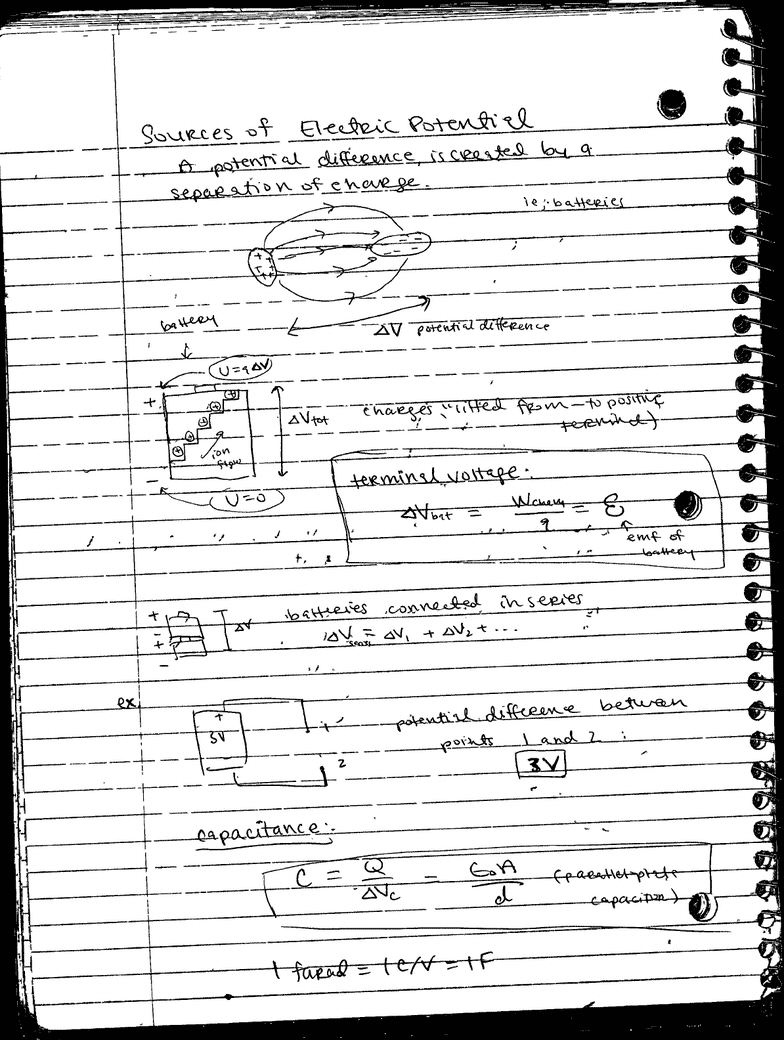 Sources of Electric Potential
A potential difference is created by a
separation of charge.
ie; batteries
+ + + + + +
- - - -
ΔV potential difference
battery
U = qΔV
+
ΔVtot
charges "lifted from - to positive
terminal)
ion
flow
-
U=0
terminal voltage:
ΔVbat = Wchem/q = ε
emf of
battery
+
-
+
-
ΔV
batteries connected in series
ΔVseries = ΔV1 + ΔV2 + ...
ex.
+
3V
-
1
2
potential difference between
points 1 and 2:
3V
capacitance:
C = Q/ΔVC = ϵ0A/d (parallel-plate
capacitor)
1 farad = 1 C/V = 1F